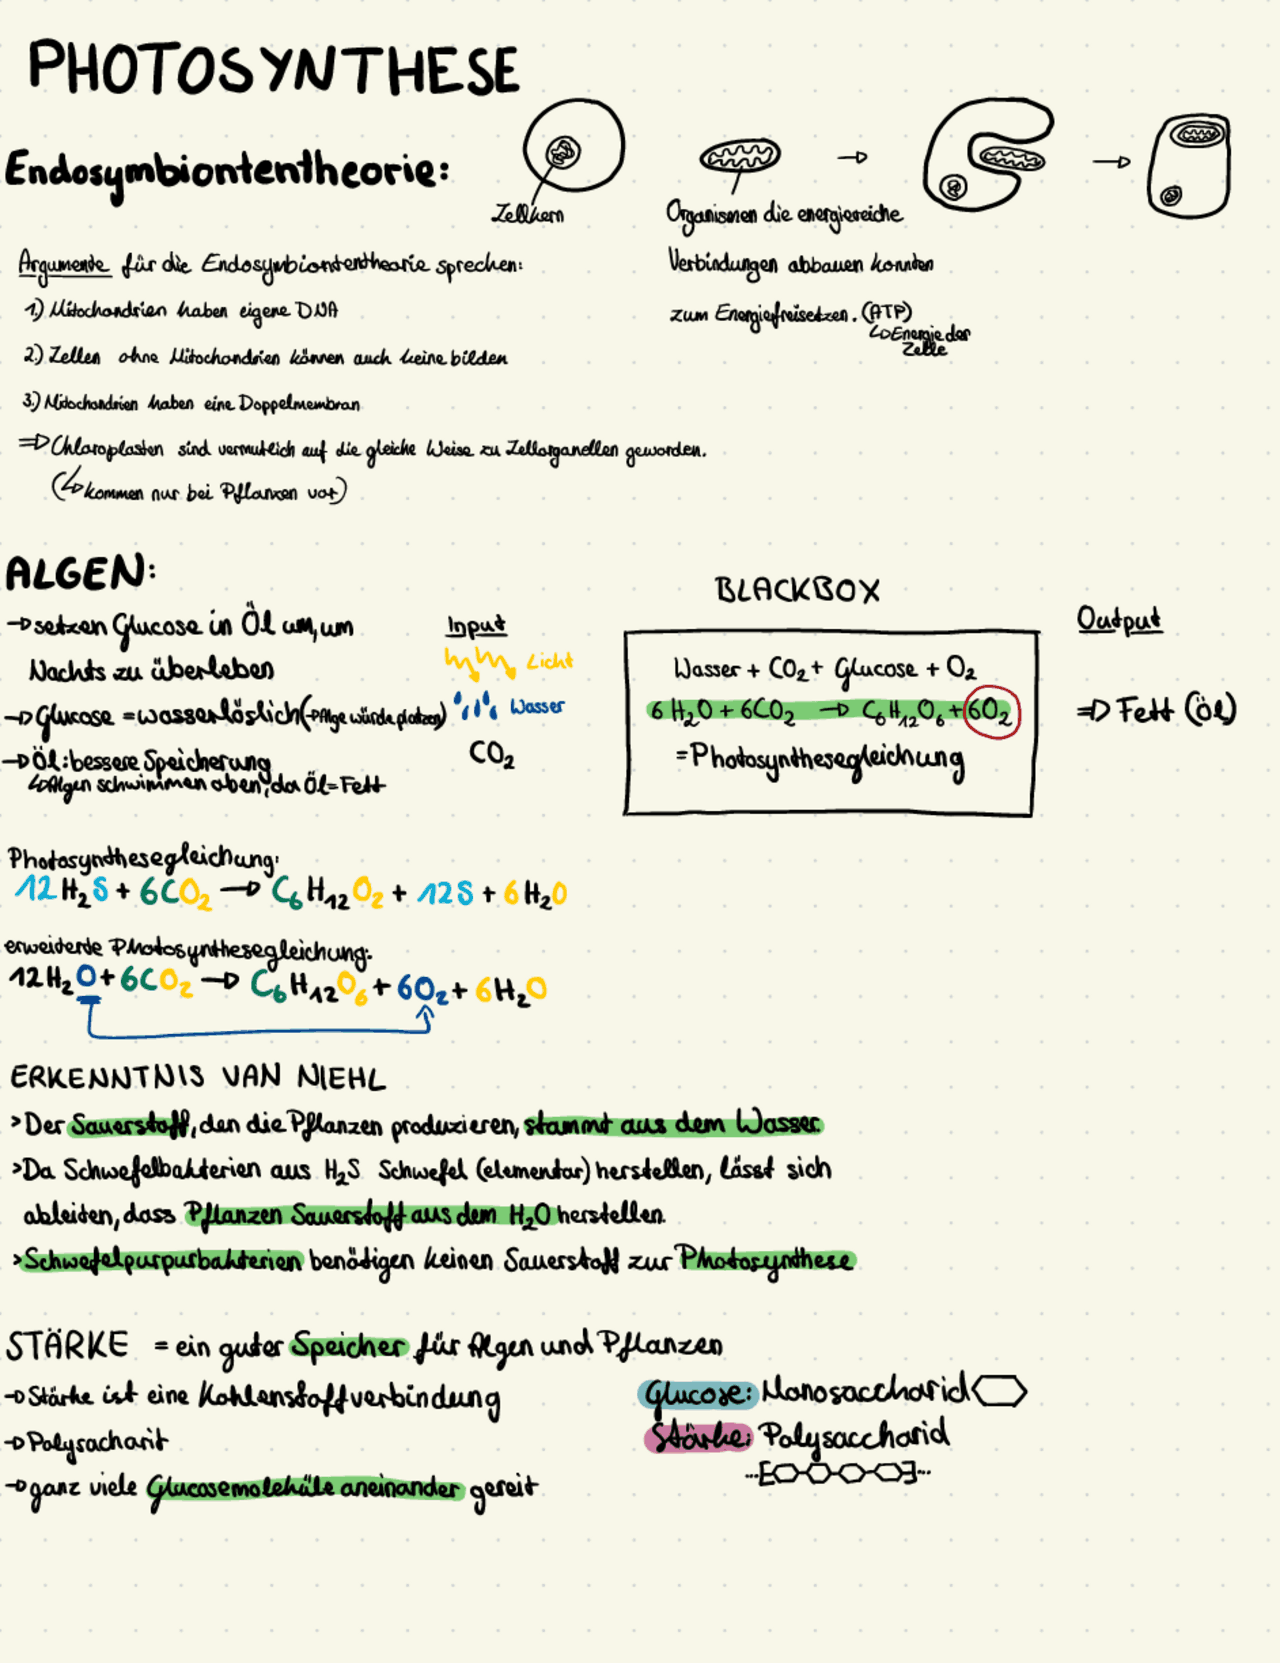 PHOTOSYNTHESE
Endosymbiontentheorie:
Zellkern
Organismen die energiereiche
Verbindungen abbauen konnten
zum Energiefreisetzen. (ATP)
↳Energie der
Zelle
Argumente für die Endosymbiontentheorie sprechen:
1.) Mitochondrien haben eigene DNA
2.) Zellen ohne Mitochondrien können auch keine bilden
3.) Mitochondrien haben eine Doppelmembran
⇒ Chloroplasten sind vermutlich auf die gleiche Weise zu Zellorganellen geworden.
(↳ kommen nur bei Pflanzen vor)
ALGEN:
→ setzen Glucose in Öl um, um
Nachts zu überleben
→ Glucose = wasserlöslich (→Alge würde platzen)
→ Öl: bessere Speicherung
↳Algen schwimmen oben, da Öl = Fett
Input
Licht
Wasser
CO₂
BLACKBOX
Wasser + CO₂ + Glucose + O₂
6 H₂O + 6CO₂ → C₆H₁₂O₆ + 6O₂
= Photosynthesegleichung
Output
⇒ Fett (Öl)
Photosynthesegleichung:
12 H₂S + 6CO₂ → C₆H₁₂O₂ + 12S + 6H₂O
erweiterte Photosynthesegleichung:
12H₂O + 6CO₂ → C₆H₁₂O₆ + 6O₂ + 6H₂O
ERKENNTNIS VAN NIEHL
> Der Sauerstoff, den die Pflanzen produzieren, stammt aus dem Wasser.
> Da Schwefelbakterien aus H₂S Schwefel (elementar) herstellen, lässt sich
ableiten, dass Pflanzen Sauerstoff aus dem H₂O herstellen.
> Schwefelpurpurbakterien benötigen keinen Sauerstoff zur Photosynthese
STÄRKE = ein guter Speicher für Algen und Pflanzen
→ Stärke ist eine Kohlenstoffverbindung
→ Polysacharit
→ ganz viele Glucosemoleküle aneinander gereit
Glucose: Monosaccharid
Stärke: Polysaccharid